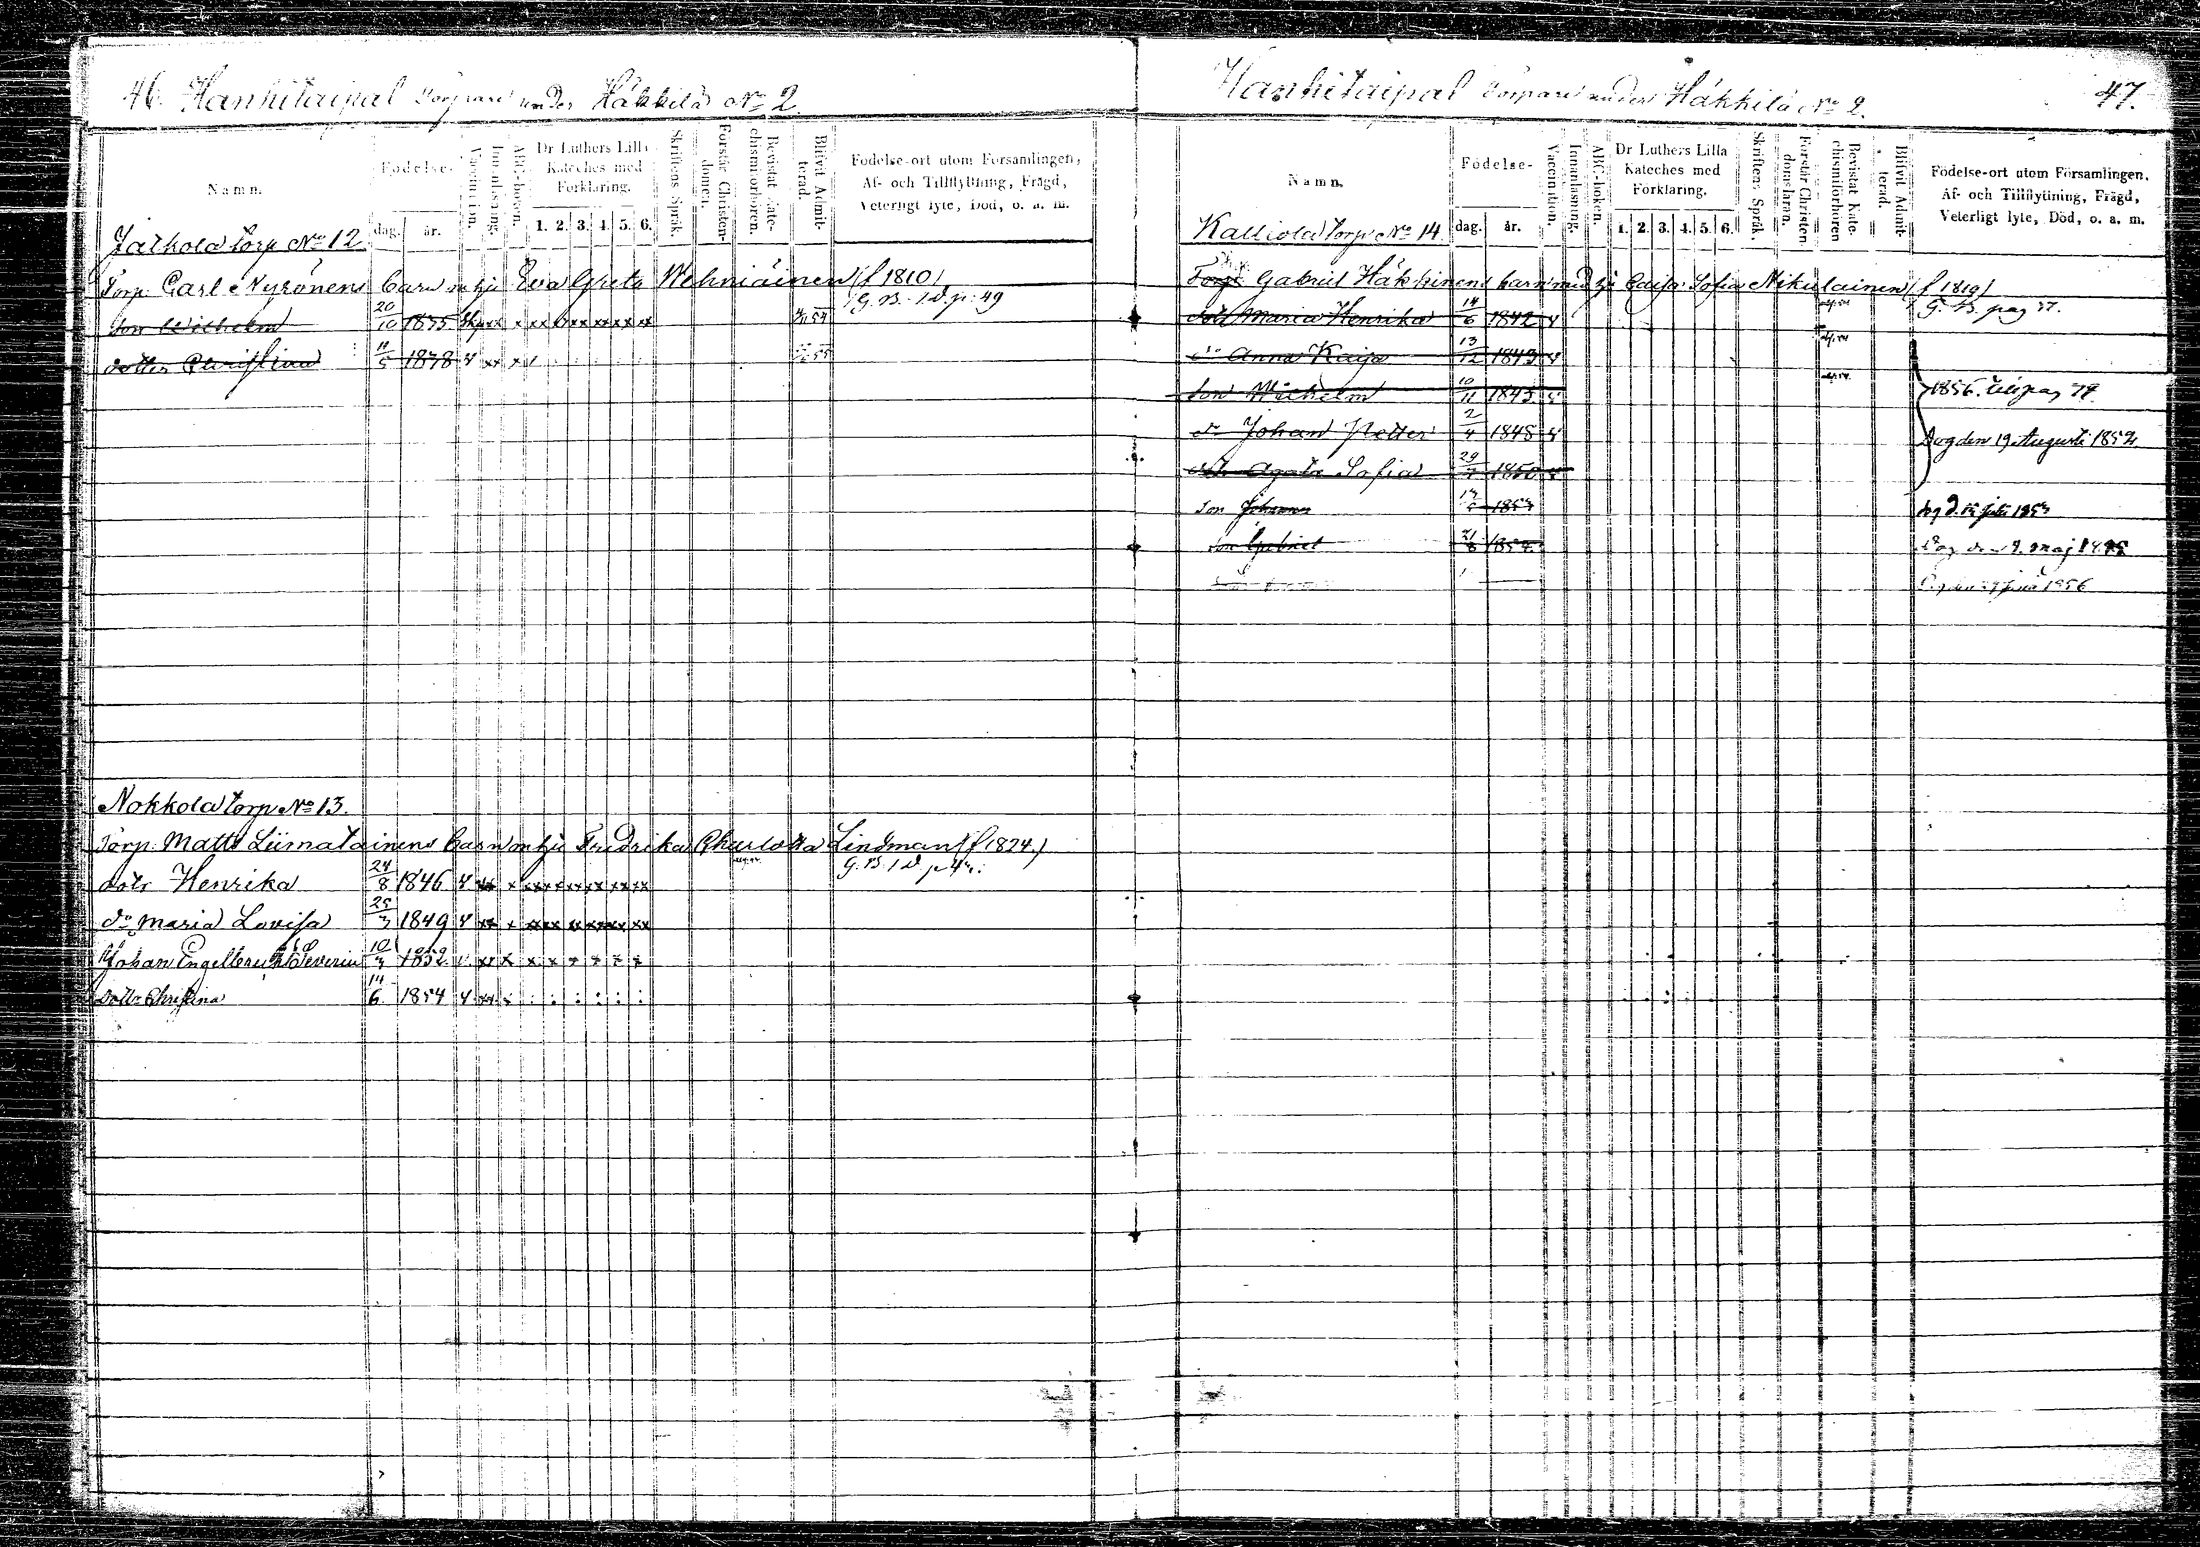 46. Hanhitaipal Torpare under Häkkilä No 2.
Namn.
Födelse-
dag.
år.
Vaccination.
Innanläsning.
ABC-boken.
Dr Luthers Lilla
Kateches med
Förklaring.
1. 2. 3. 4. 5. 6.
Skriftens Språk.
Förstår Christen-
domen.
Bevistat Kate-
chismiförhören.
Blifvit Admit-
terad.
Födelse-ort utom Församlingen,
Af- och Tillflyttning, Frägd,
Veterligt lyte, Död, o. a. m.
Jalkola torp No 12
Torp. Carl Nyrönens barn m hu Eva Greta Wehniäinen (f 1810)
G. B. 1 d. p. 49
Son Wilhelm 20/10 1835
dotter Christina 11/5 1838
Nokkola torp No 13.
Torp. Matts Liimatainens barn m hu Fredrika Charlotta Lindman (f 1824)
G. B. 1 d. p
dotr Henrika 24/8 1846
do Maria Lovisa 25/3 1849
Johan Engelbrecht Severin 10/3 1852
dottr Christina 14/6 1854
Hanhitaipal Torpare under Häkkilä No 2.
47.
Namn.
Födelse-
dag.
år.
Vaccination.
Innanläsning.
ABC-boken.
Dr Luthers Lilla
Kateches med
Förklaring.
1. 2. 3. 4. 5. 6.
Skriftens Språk.
Förstår Christen-
domsläran.
Bevistat Kate-
chismiförhören
Blifvit Admit-
terad.
Födelse-ort utom Församlingen,
Af- och Tillflyttning, Frägd,
Veterligt lyte, Död, o. a. m.
Kalliola torp No 14.
Torp. Gabriel Häkkinens barn med hu Caisa Sofia Nikulainen (f 1819)
G. B. pag
dotr Maria Henrika 14/6 1842
do Anna Kaisa 13/12 1843
Son Wilhelm 10/11 1845
1856. till pag
do Johan Petter 2/4 1848
Dog den 19 Augusti 1852
dotr Agata Sofia 29/7 1850
son Johannes
son Gabriel 21/8
Dog den 9. maj
1856